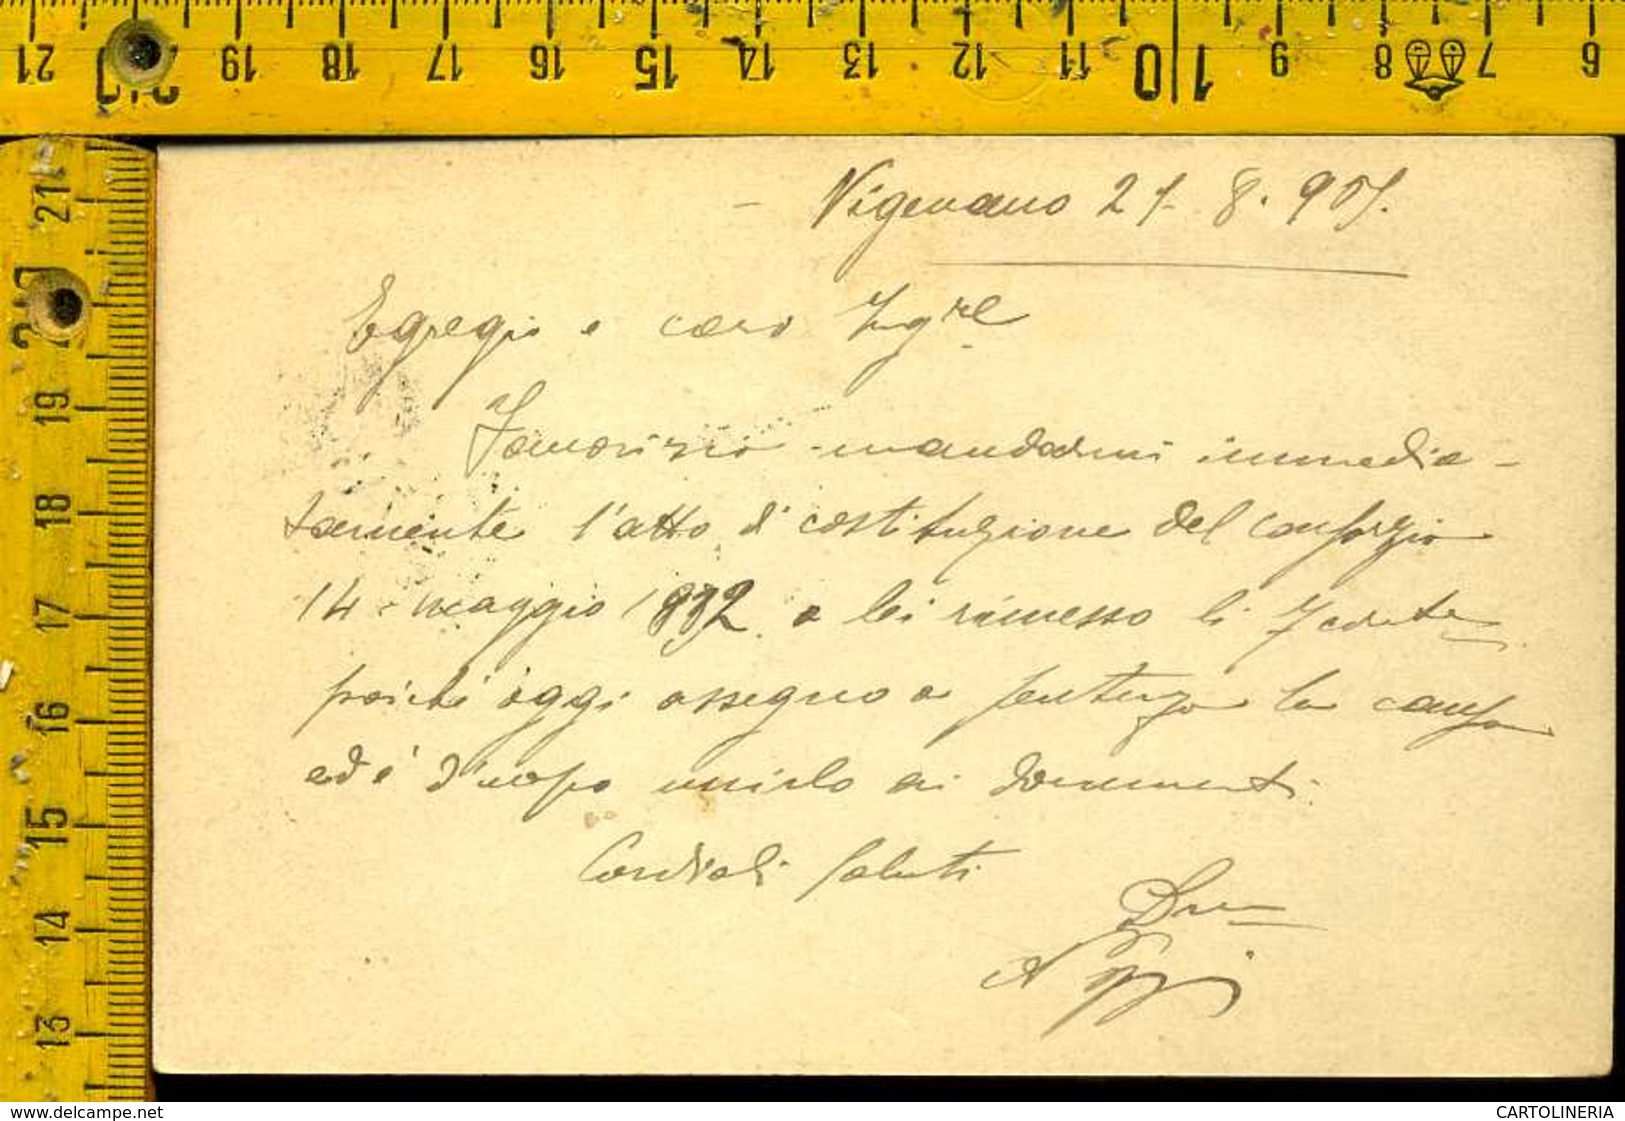 21 20 19 18 17 16 15 14 13 12 11 10 9 8 7 6
21
20
19
18
17
16
15
14
13
Vigevano 21. 8. 905.
Egregio e caro Ing.re
Favorisca mandarmi immedia-
tamente l'atto di costituzione del consorzio
14 maggio 1892 a lei rimesso li
poiché oggi assegno a sentenza la causa
ed è d'uopo unirlo ai documenti.
Cordiali saluti
www.delcampe.net
CARTOLINERIA